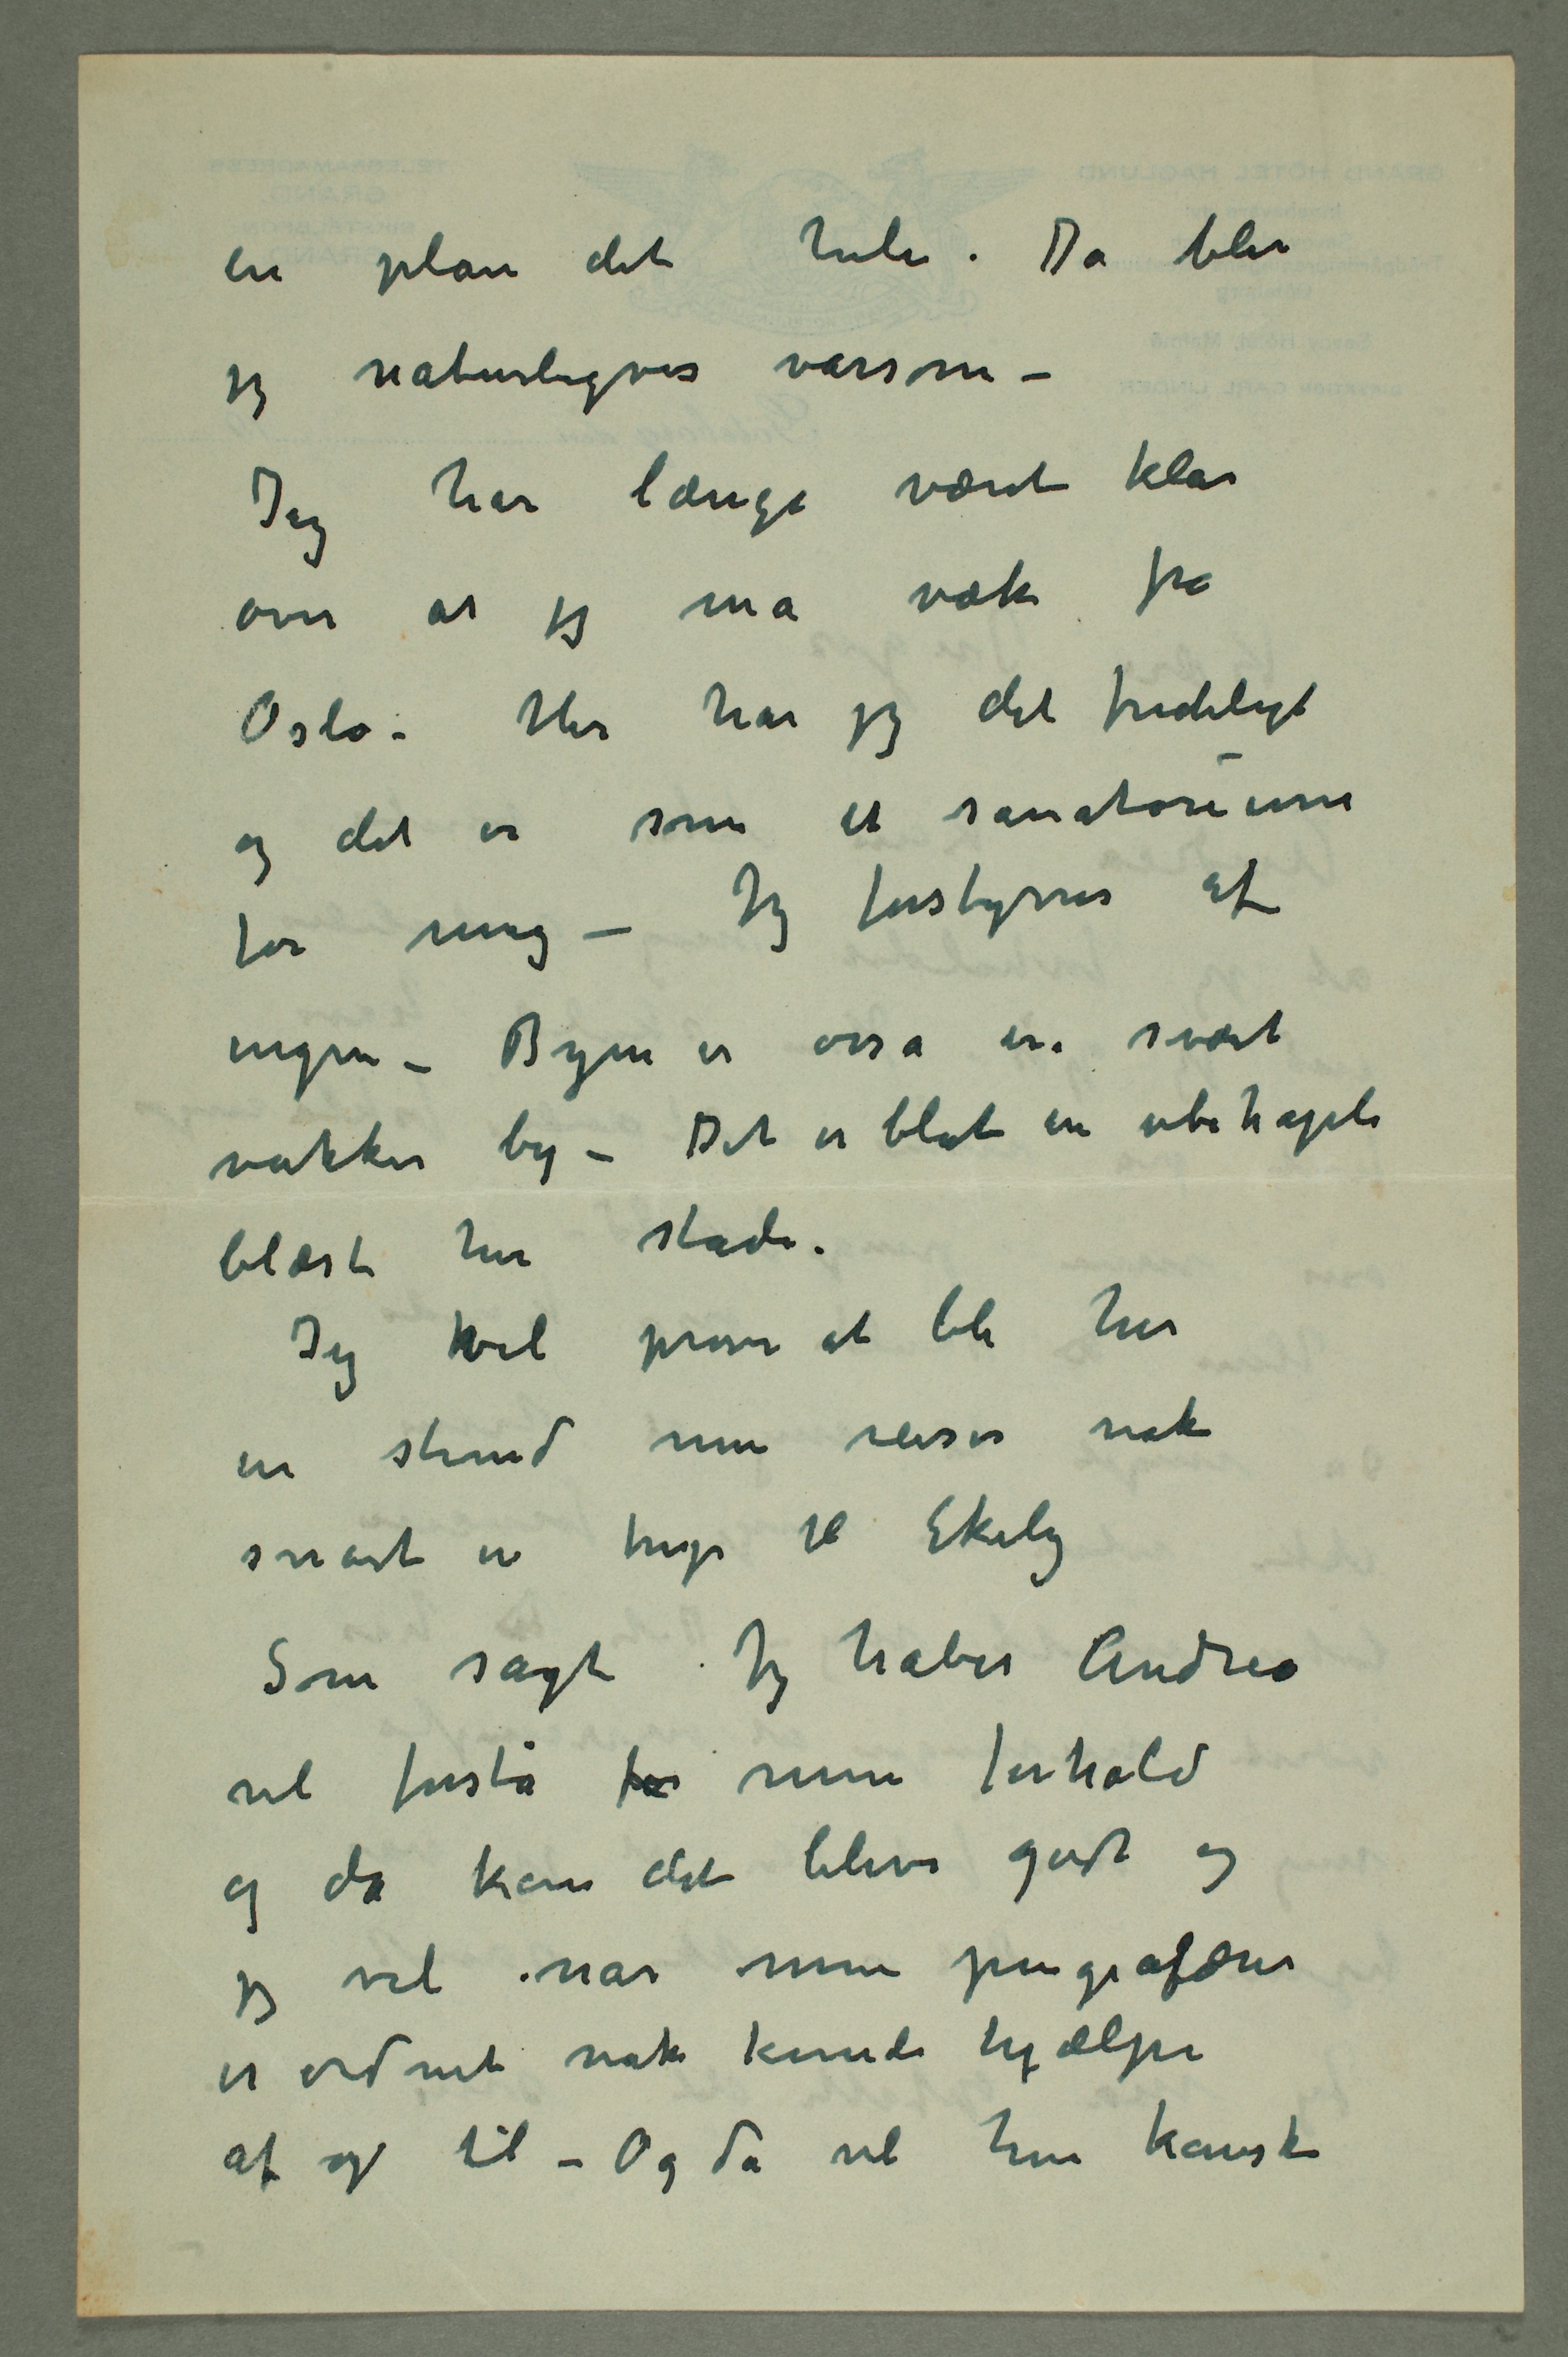 en plan det hele. Da blir
jeg naturligvis varsom –
Jeg har længe været klar
over at jeg må væk fra
Oslo – Her har jeg det fredeligt
og det er som et sanatorium
for mig – Jeg forstyrres af
ingen – Byen er også en svært
vakker by – Det er blot en ubehagele
blæst her stade.
Jeg vil prøve at bli her
en stund men reiser nok
snart en tur til Ekely
Som sagt Jeg håber Andrea
vil forstå mine forhold
og da kan det blive godt og
jeg vil når mine pengeafærer
er ordnet nok kunde hjælpe
af og til – Og da vil hun kanske